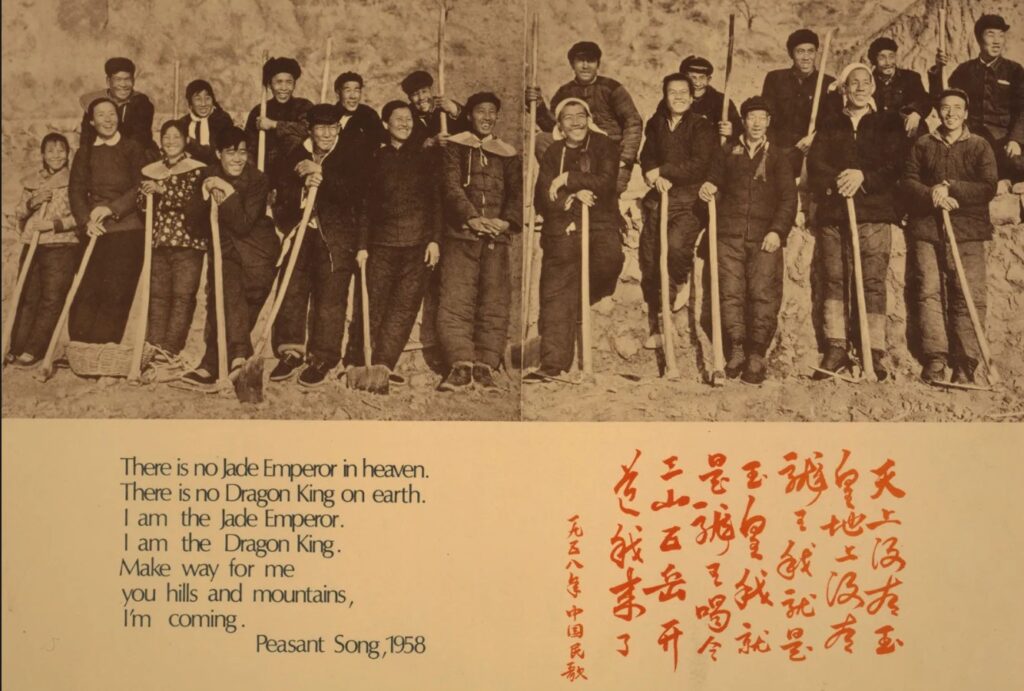 There is no Jade Emperor in heaven.
There is no Dragon King on earth.
I am the Jade Emperor.
I am the Dragon King.
Make way for me
you hills and mountains,
I'm coming.
Peasant Song, 1958
天上没有玉
皇地上没有
龍王我就是
玉皇我就
是龍王喝令
三山五岳开
道我来了
一九五八年中国民歌